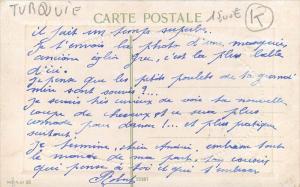 TURQUIE
CARTE POSTALE
K
il fait un temps superbe.
Je t'envoie la photo d'une mosquée,
ancienne église grec, c'est la plus belle
d'ici.
Je pense que les petits poulets de ta grand'
mère sont sauvés ?...
Je suis très curieux de voir ta nouvelle
coupe de cheveux et ce sera plus
comode pour danser !... et plus pratique
surtout.
Je termine, chère Andrée, embrasse tout
le monde de ma part, ton cousin
qui pense à toi et qui t'embrasse